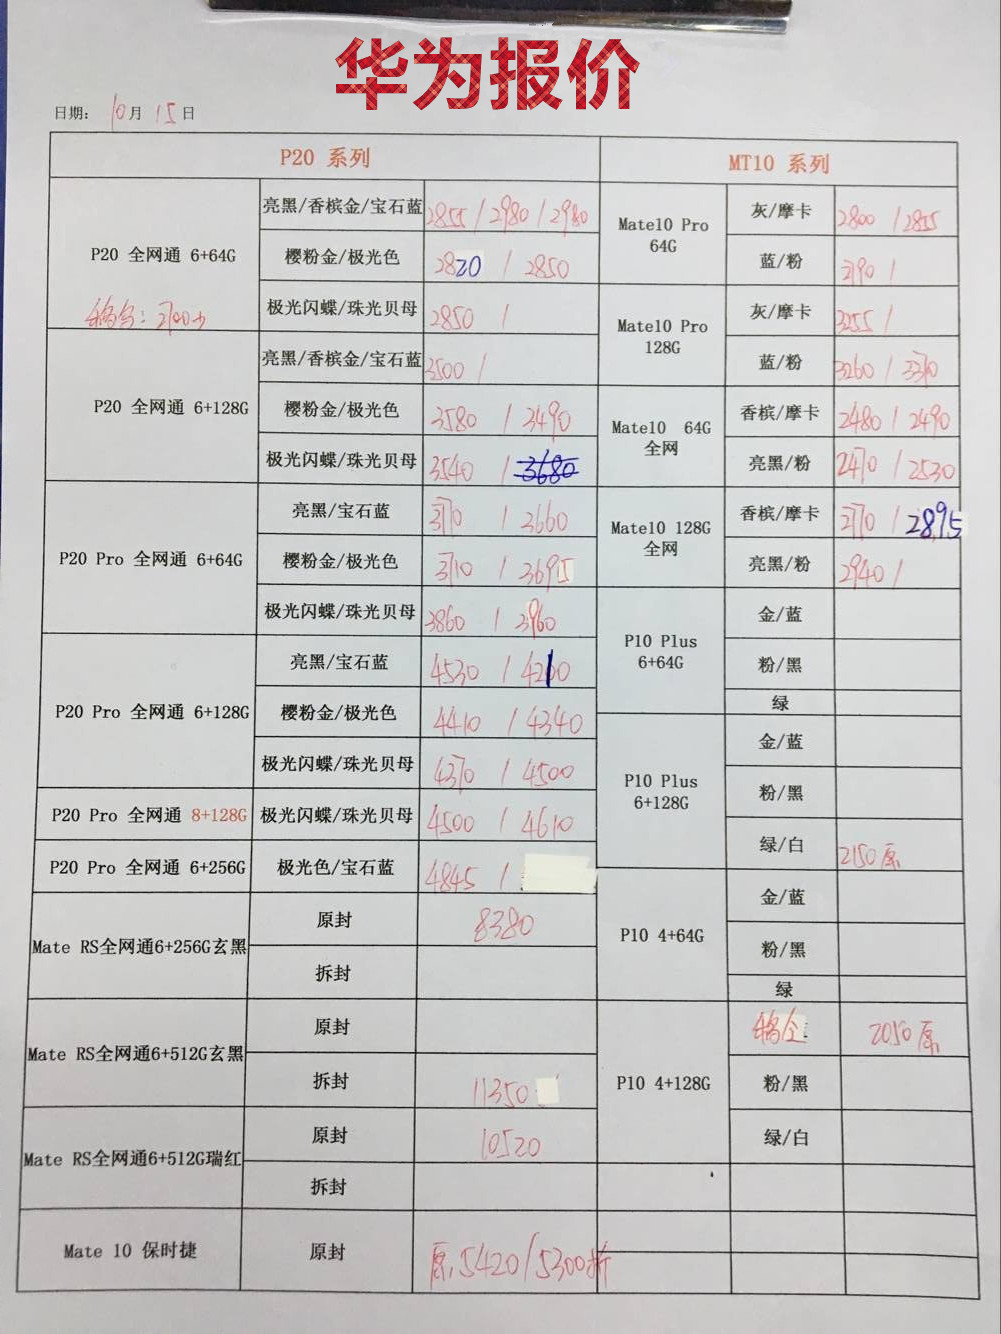 华为报价
日期： 10月 15日
P20 系列
P20 全网通 6+64G
亮黑/香槟金/宝石蓝 2855 / 2980 / 2980
樱粉金/极光色 2820 / 2850
极光闪蝶/珠光贝母 2850 /
P20 全网通 6+128G
亮黑/香槟金/宝石蓝 3500 /
樱粉金/极光色 3580 / 3490
极光闪蝶/珠光贝母 3540 / 3680
P20 Pro 全网通 6+64G
亮黑/宝石蓝 3710 / 3660
樱粉金/极光色 3710 / 3695
极光闪蝶/珠光贝母 3860 / 3960
P20 Pro 全网通 6+128G
亮黑/宝石蓝 4530 /
樱粉金/极光色 4410 / 4340
极光闪蝶/珠光贝母 4370 / 4500
P20 Pro 全网通 8+128G 极光闪蝶/珠光贝母 4500 / 4610
P20 Pro 全网通 6+256G 极光色/宝石蓝 4845 /
Mate RS全网通6+256G玄黑
原封 8380
拆封
Mate RS全网通6+512G玄黑
原封
拆封 11350
Mate RS全网通6+512G瑞红
原封 10520
拆封
Mate 10 保时捷 原封 原,5420/5300拆
MT10 系列
Mate10 Pro
64G
灰/摩卡 2800 / 2855
蓝/粉 2790 /
Mate10 Pro
128G
灰/摩卡 3255 /
蓝/粉 3260 / 3370
Mate10 64G
全网
香槟/摩卡 2480 / 2490
亮黑/粉 2470 / 2530
Mate10 128G
全网
香槟/摩卡 2770 / 2895
亮黑/粉 2940 /
P10 Plus
6+64G
金/蓝
粉/黑
绿
P10 Plus
6+128G
金/蓝
粉/黑
绿/白 2150原
P10 4+64G
金/蓝
粉/黑
绿
P10 4+128G
2050原
粉/黑
绿/白